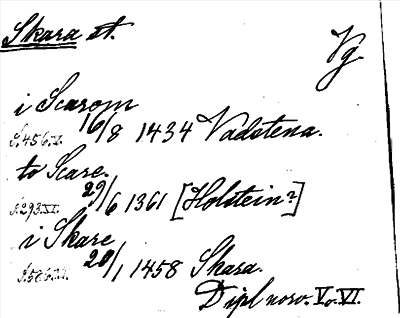 Skara st.
Vg.
i Scarom
16/8 1434 Vadstena.
S.456.V.
to Scare.
29/6 1361 [Holstein?]
S.293.VI.
i Skare
20/1 1458 Skara.
Dipl norv. V o. VI.